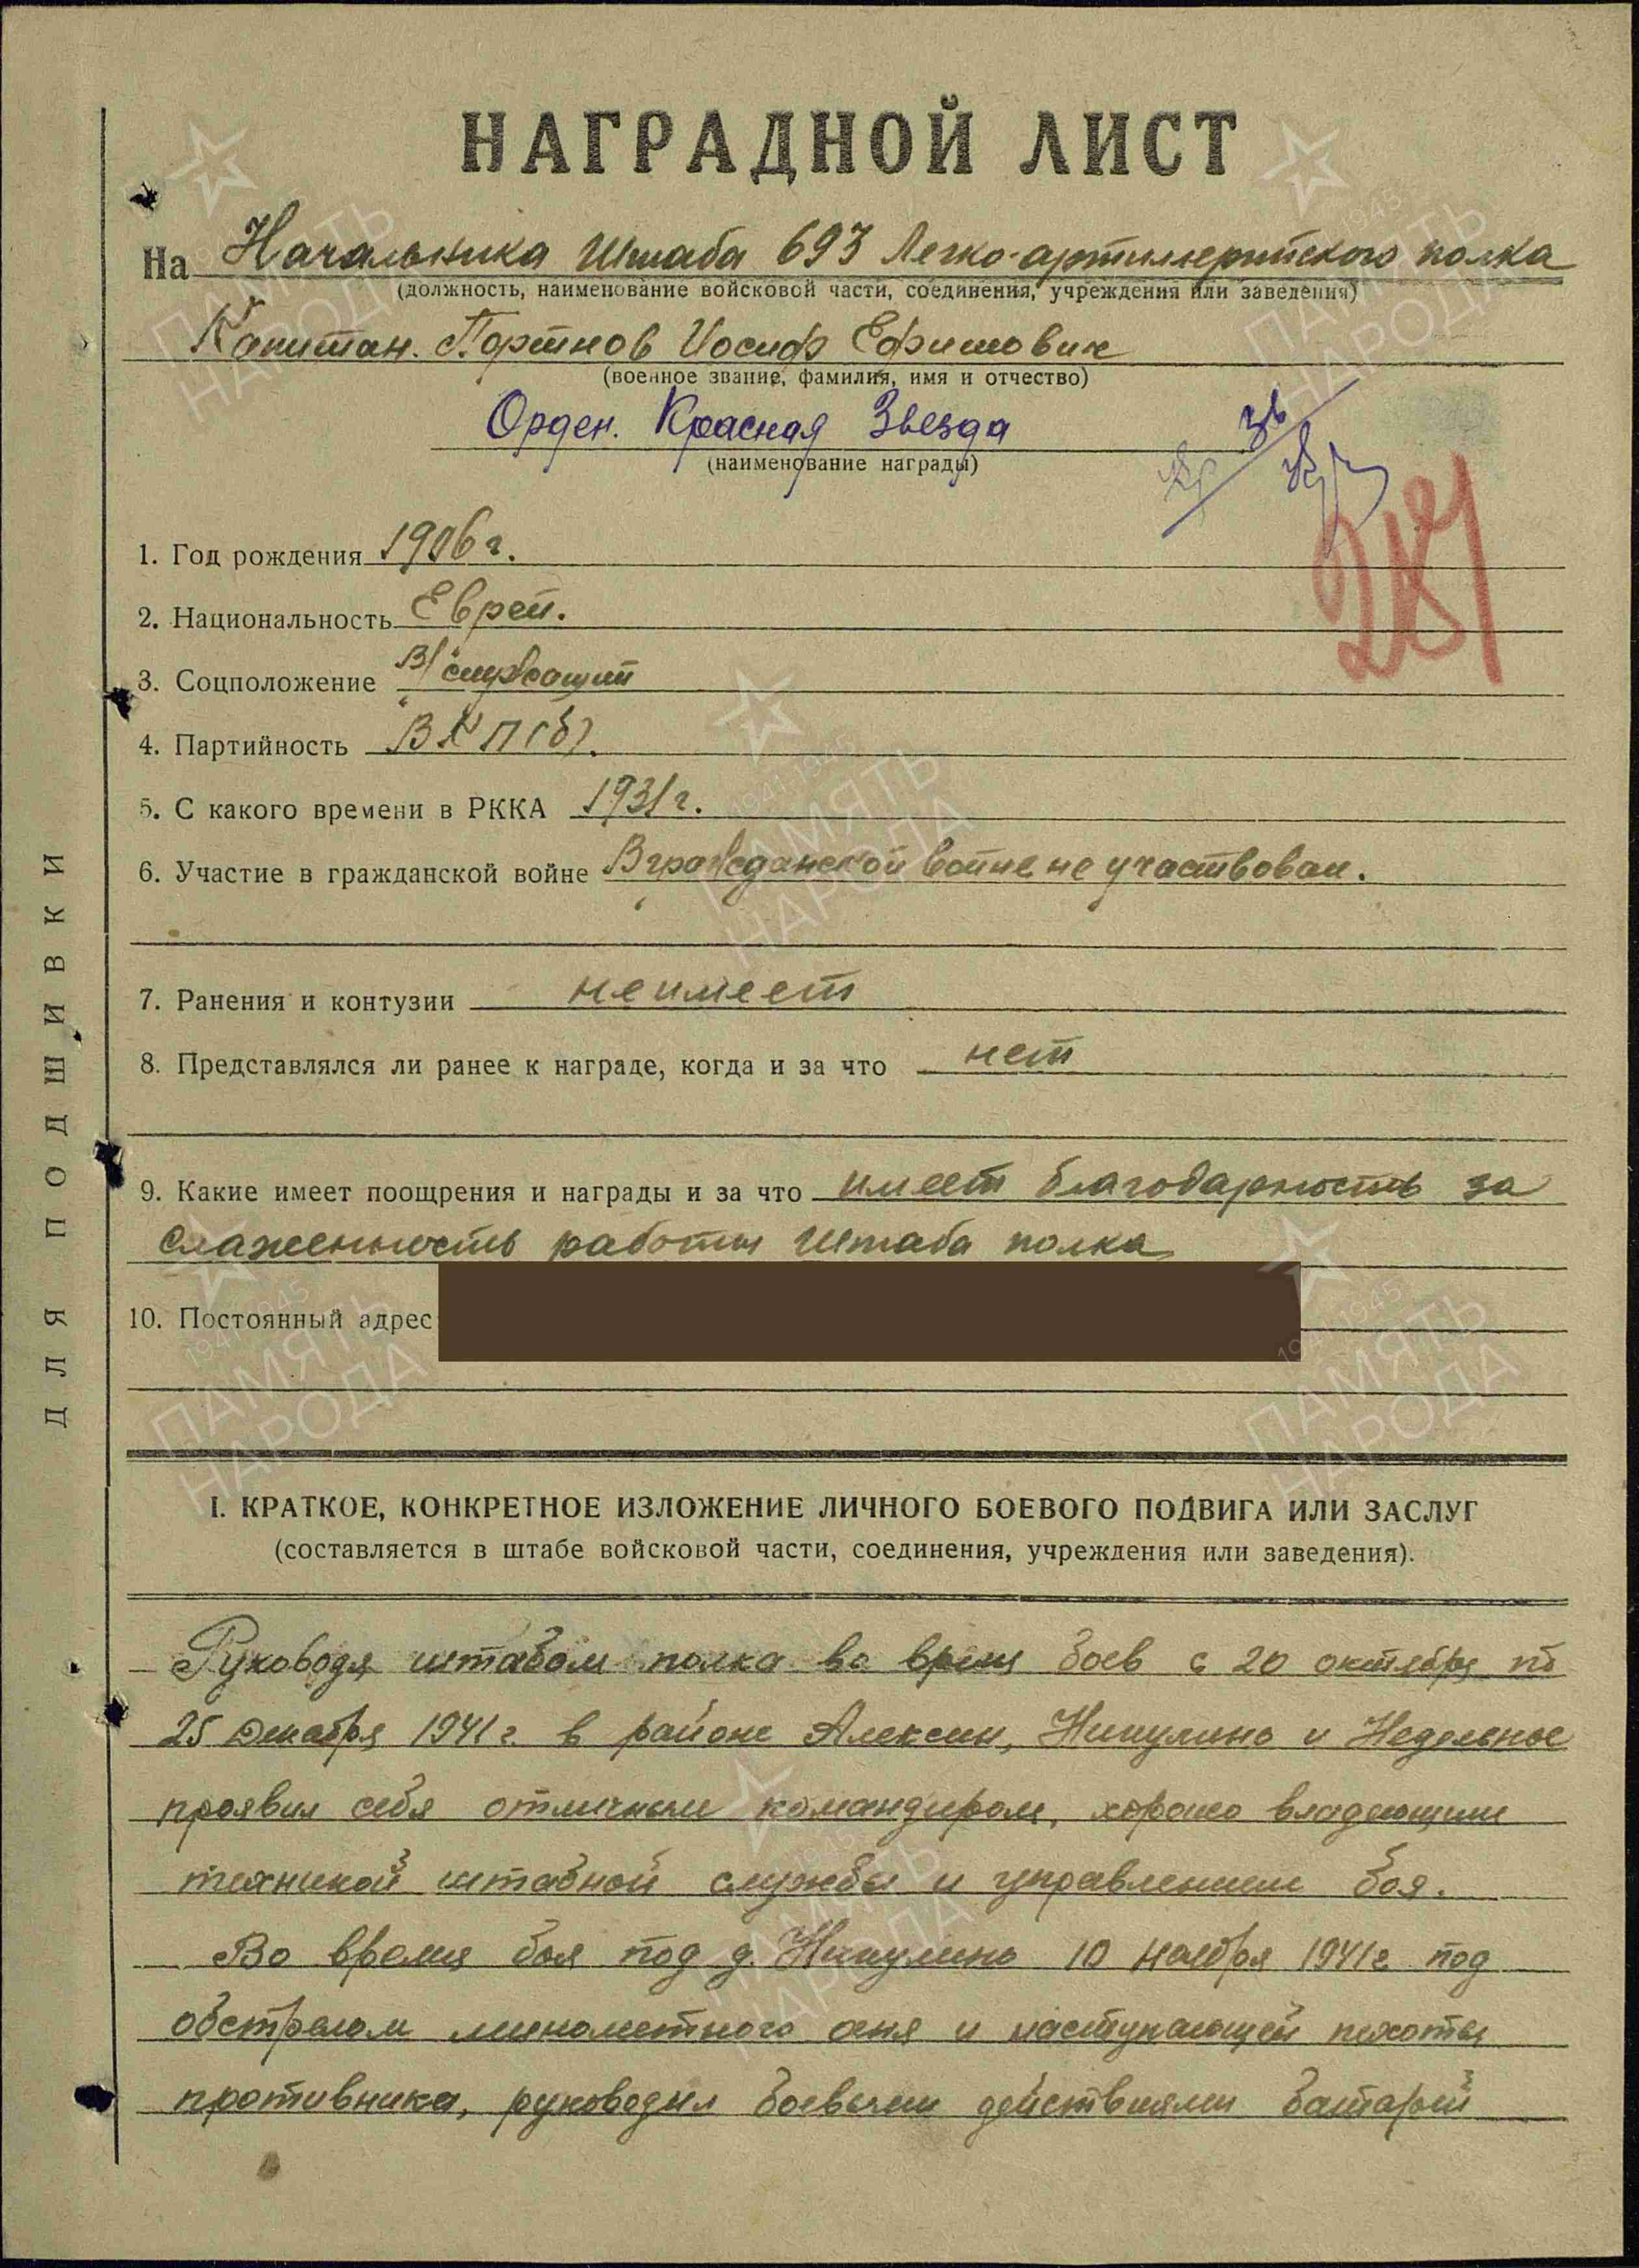 НАГРАДНОЙ ЛИСТ
На Начальника Штаба 693 Легко-артиллерийского полка
(должность, наименование войсковой части, соединения, учреждения или заведения)
Капитан. Портнов Иосиф Ефимович
(военное звание, фамилия, имя и отчество)
Орден. Красная Звезда
(наименование награды)
1. Год рождения 1906 г.
2. Национальность Еврей.
3. Соцположение В/служащий
4. Партийность ВКП(б).
5. С какого времени в РККА 1931 г.
6. Участие в гражданской войне В гражданской войне не участвовал.
7. Ранения и контузии не имеет
8. Представлялся ли ранее к награде, когда и за что нет
9. Какие имеет поощрения и награды и за что имеет благодарность за
слаженность работы штаба полка
10. Постоянный адрес
I. КРАТКОЕ, КОНКРЕТНОЕ ИЗЛОЖЕНИЕ ЛИЧНОГО БОЕВОГО ПОДВИГА ИЛИ ЗАСЛУГ
(составляется в штабе войсковой части, соединения, учреждения или заведения).
Руководя штабом полка во время боев с 20 октября по
25 декабря 1941 г. в районе Алексин, Никулино и Недельное
проявил себя отличным командиром, хорошо владеющим
техникой штабной службы и управлением боя.
Во время боя под д. Никулино 10 ноября 1941 г. под
обстрелом минометного огня и наступающей пехоты
противника, руководил боевыми действиями батарей
ДЛЯ ПОДШИВКИ
ПАМЯТЬ НАРОДА
1941 1945